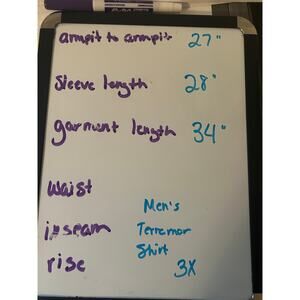 armpit to armpit 27"
Sleeve length 28"
garment length 34"
waist
Men's
inseam Terramar
Shirt
rise 3X